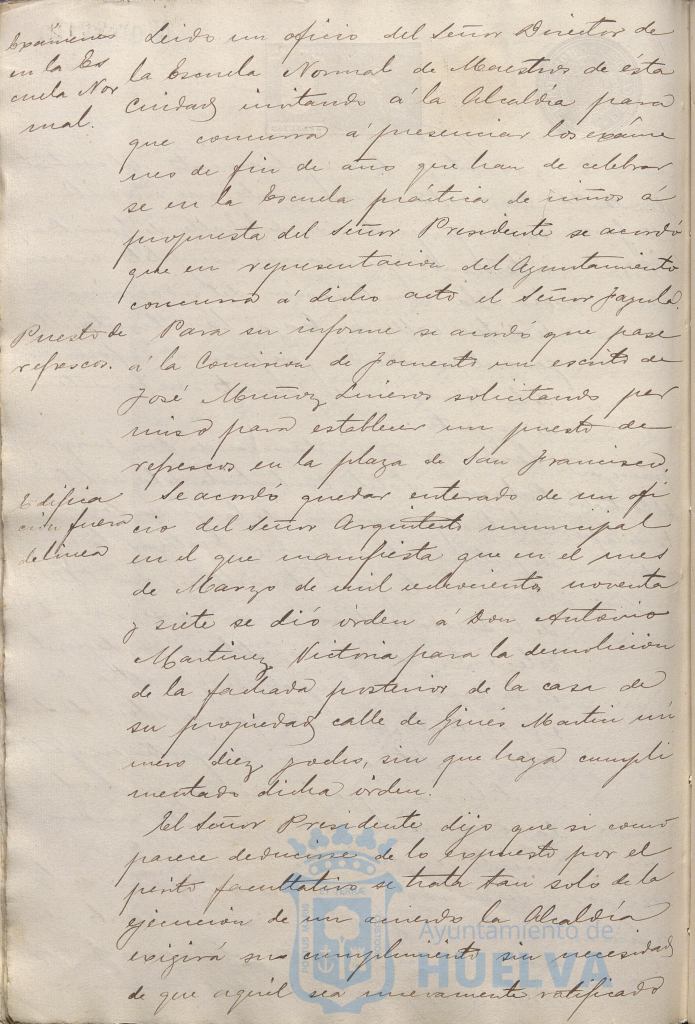 Exámenes
en la Es
cuela Nor
mal.
Leido un oficio del Señor Director de
la Escuela Normal de Maestros de ésta
Ciudad invitando á la Alcaldía para
que concurra á presenciar los exáme
nes de fin de año que han de celebrar
se en la Escuela práctica de niños á
propuesta del Señor Presidente se acordó
que en representacion del Ayuntamiento
concurra á dicho acto el Señor
Puesto de
refrescos.
Para su informe se acordó que pase
á la Comision de Fomento un escrito de
José Muñoz solicitando per
miso para establecer un puesto de
refrescos en la plaza de San Francisco.
Edifica
ción fuera
de linea
Se acordó quedar enterado de un ofi
cio del Señor Arquitecto municipal
en el que manifiesta que en el mes
de Marzo de mil ochocientos noventa
y siete se dió órden á Don Antonio
Martinez Victoria para la demolicion
de la fachada posterior de la casa de
su propiedad calle de Ginés Martin nú
mero diez y ocho, sin que haya cumpli
mentado dicha órden.
El Señor Presidente dijo que si como
parece deducirse de lo expuesto por el
perito facultativo se trata tan solo de la
ejecucion de un acuerdo la Alcaldía
exigirá su cumplimiento sin necesidad
de que aquél sea nuevamente ratificado
Ayuntamiento de
HUELVA